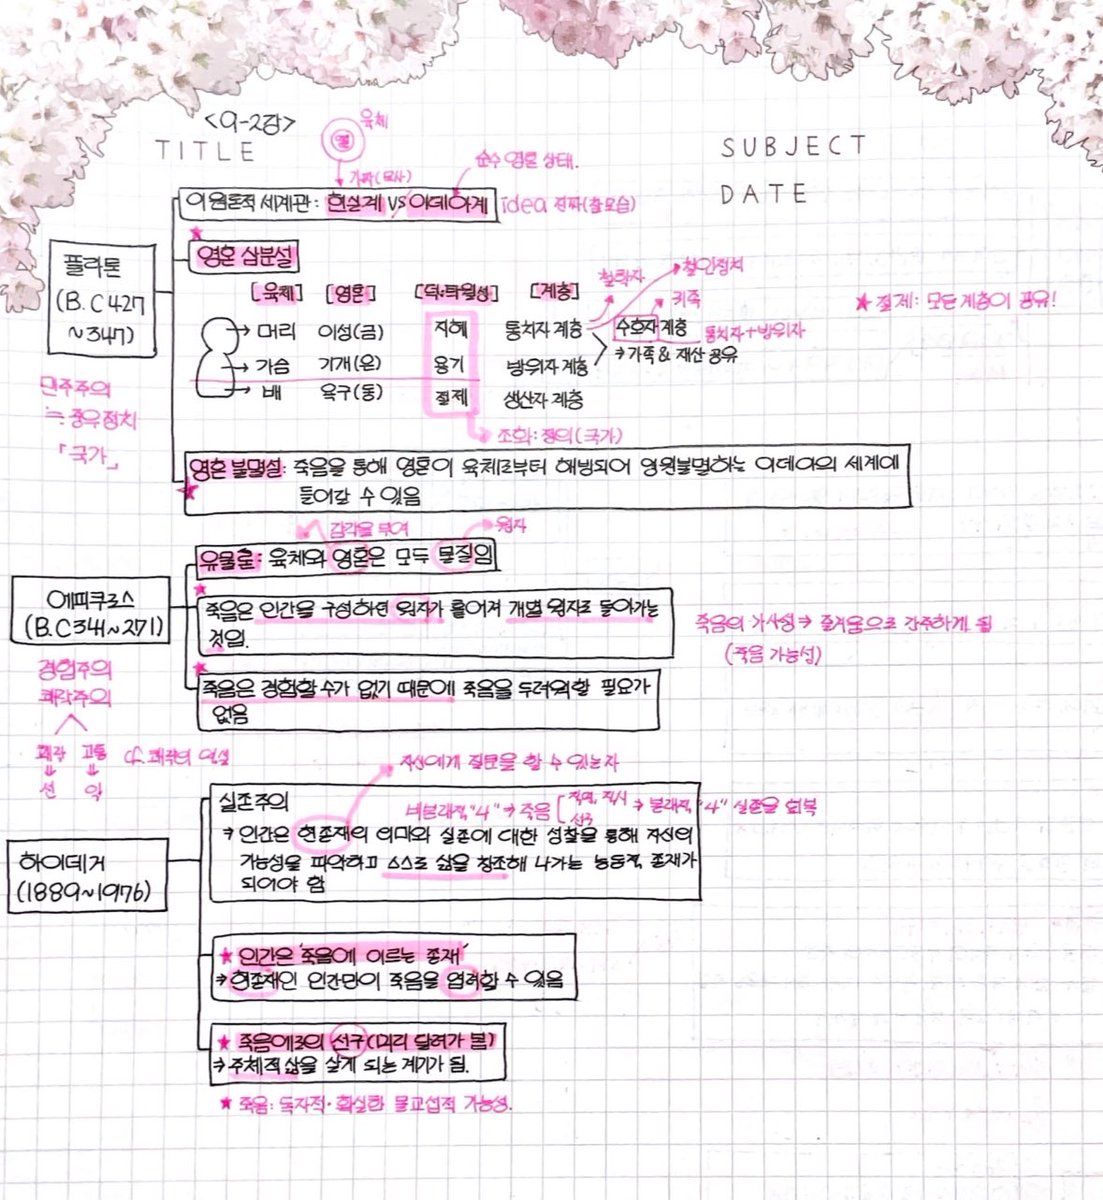 <9-2강>
TITLE
SUBJECT
DATE
육체
영
가짜(묘사)
순수 영혼 상태.
이원론적 세계관: 현실계 VS 이데아계 idea 진짜(참모습)
★
영혼 삼분설
플라톤
(B.C 427
~347)
[육체] [영혼] [덕:탁월성] [계층]
철학자 철인정치
귀족
★ 절제: 모든 계층이 공유!
→ 머리 이성(금) 지혜 통치자 계층
수호자 계층
통치자+방위자
⇒ 가족 & 재산 공유
→ 가슴 기개(은) 용기 방위자 계층
→ 배 욕구(동) 절제 생산자 계층
조화: 정의(국가)
민주주의
≒ 중우정치
「국가」
영혼 불멸설: 죽음을 통해 영혼이 육체로부터 해방되어 영원불멸하는 이데아의 세계에
들어갈 수 있음
★
감각을 부여
원자
유물론: 육체와 영혼은 모두 물질임
에피쿠로스
(B.C 341~271)
★
죽음은 인간을 구성하던 원자가 흩어져 개별 원자로 돌아가는
것임.
죽음의 가사성 ⇒ 즐거움으로 간주하게 됨
(죽음 가능성)
★
죽음은 경험할 수가 없기 때문에 죽음을 두려워할 필요가
없음
경험주의
쾌락주의
쾌락 고통
선 악
cf. 쾌락의 역설
자신에게 질문을 할 수 있는 자
실존주의
비본래적 "나" ⇒ 죽음 [ 직면, 직시
선구
⇒ 본래적 "나" 실존을 회복
⇒ 인간은 현존재의 의미와 실존에 대한 성찰을 통해 자신의
가능성을 파악하고 스스로 삶을 창조해 나가는 능동적 존재가
되어야 함
하이데거
(1889~1976)
★ 인간은 '죽음에 이르는 존재'
⇒ 현존재인 인간만이 죽음을 염려할 수 있음
★ 죽음에로의 선구(미리 달려가 봄)
⇒ 주체적 삶을 살게 되는 계기가 됨.
★ 죽음: 독자적·확실한 몰교섭적 가능성.